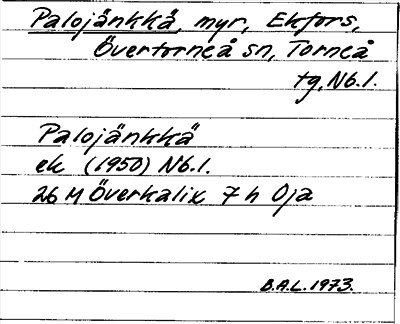 Palojänkkä, myr, Ekfors,
Övertorneå sn, Torneå
tg, Nb.l.
Palojänkkä
ek (1950) Nb.l.
26 M Överkalix 7 h Öja
B.A.L. 1973.